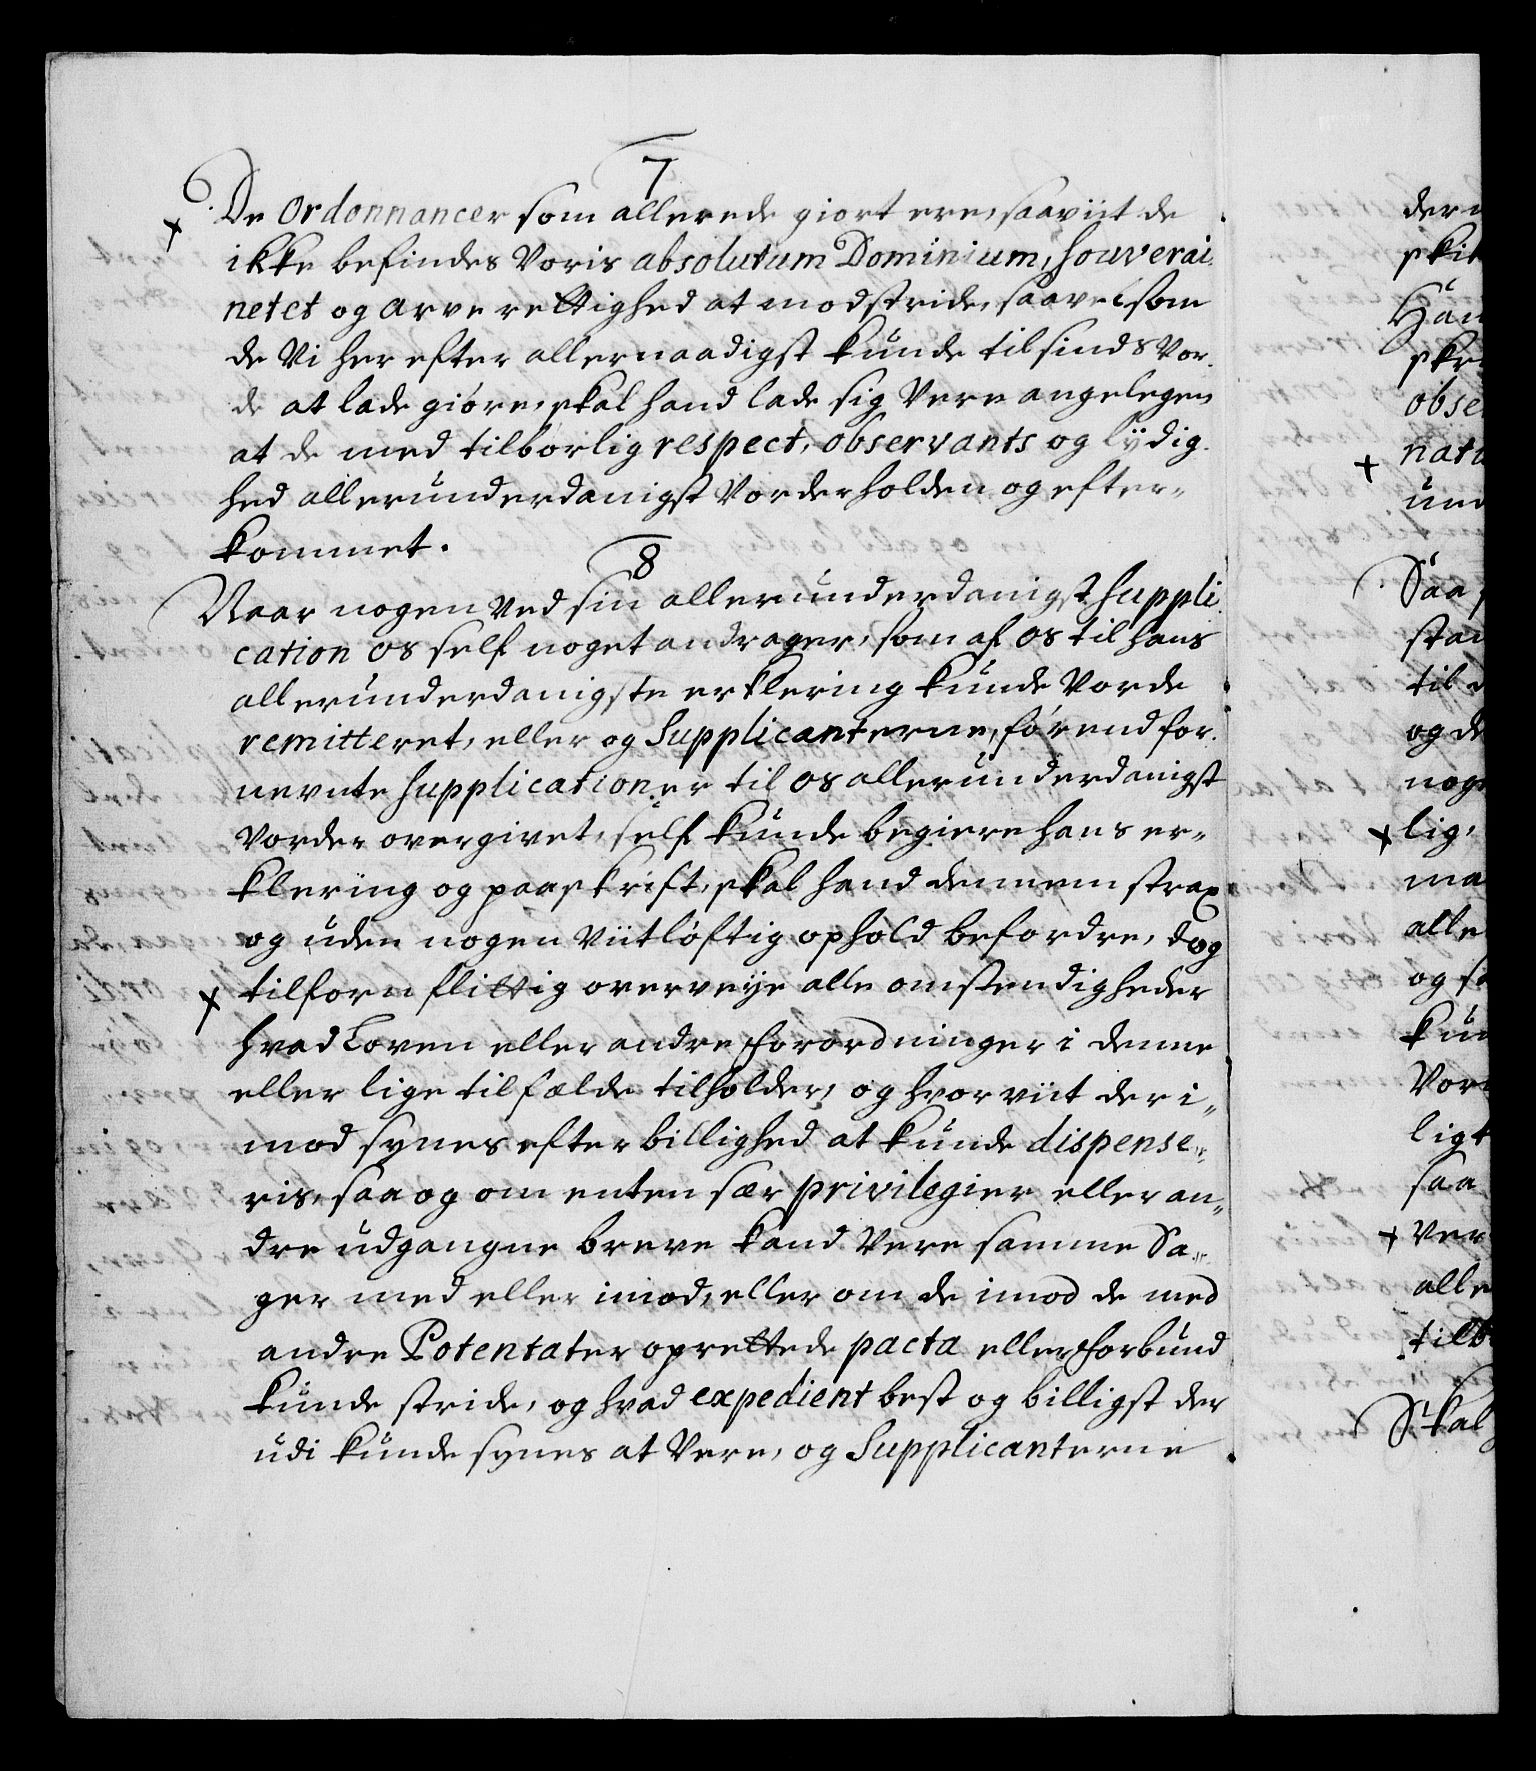 7
De Ordonnancer som allerede giort ere, saaviit de
ikke befindes Voris absolutum Dominium, souverai
netet og arve rettighed at modstride, saavel som
de Vi her efter allernaadigst kunde tilsinds Vor
de at lade giøre, skal hand lade sig Vere angelegen
at de med tilbørlig respect, observants og lÿdig
hed allerunderdanigst Vorder holden og efter„
kommet.
8
Naar nogen Ved sin allerunderdanigst suppli
cation os self noget andrager, som af os til hans
allerunderdanigste erklering kunde Vorde
remitteret, eller og Supplicanterne, førend for
nevnte supplicationer til os allerunderdanigst
Vorder overgivet, self kunde begiere hans er„
klering og paaskrift, skal hand dennem strax
og uden nogen Viitløftig ophold befordre, dog
tilforn flittig overveÿe alle omstendigheder
hvad Loven eller andre forordninger i denne
eller lige tilfælde tilholder, og hvorviit der i„
mod synes efter billighed at kunde dispense„
ris, saa og om enten sær privilegier eller an„
dre udgangne breve kand Vere samme Sa„
ger med eller imod, eller om de imod de med
andre Potentater oprettede pacta eller forbund
kunde stride, og hvad expedient best og billigst der
udi kunde synes at Vere, og Supplicanterne
skit
obse
Saa
til
og de
lig,
ma
alle
ligt
saa
ver
alle
Skal